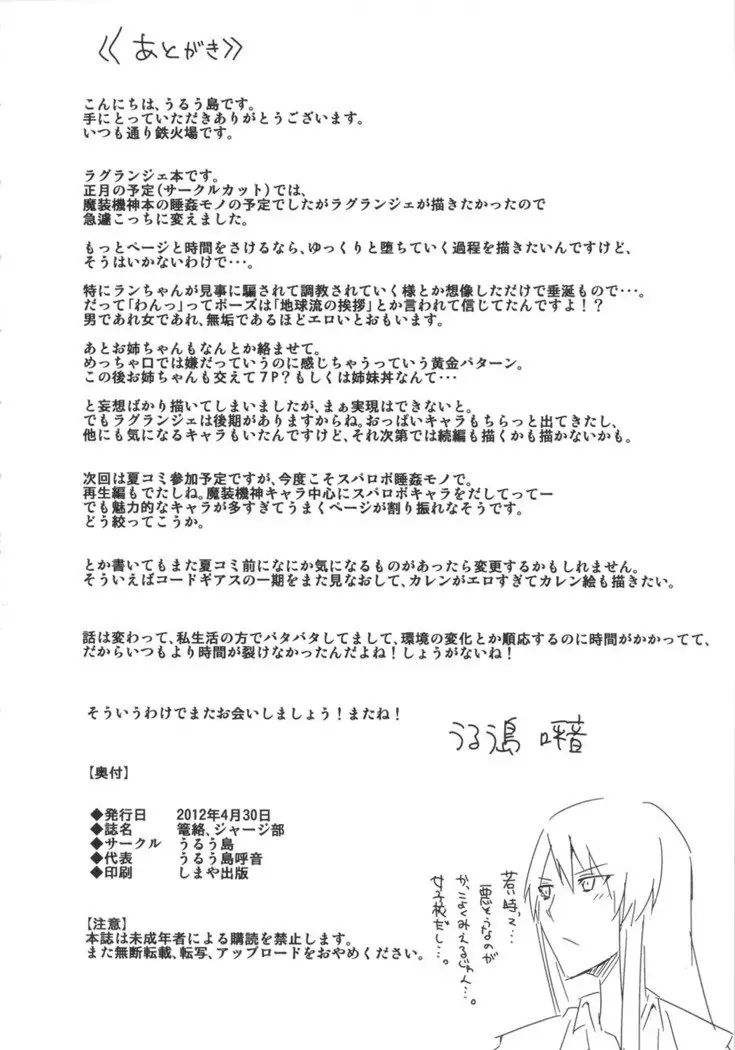 《あとがき》
こんにちは、うるう島です。
手にとっていただきありがとうございます。
いつも通り鉄火場です。
ラグランジェ本です。
正月の予定(サークルカット)では、
魔装機神本の睡姦モノの予定でしたがラグランジェが描きたかったので
急遽こっちに変えました。
もっとページと時間をさけるなら、ゆっくりと堕ちていく過程を描きたいんですけど、
そうはいかないわけで・・・。
特にランちゃんが見事に騙されて調教されていく様とか想像しただけで垂涎もので・・・。
だって「わんっ」ってポーズは「地球流の挨拶」とか言われて信じてたんですよ！？
男であれ女であれ、無垢であるほどエロいとおもいます。
あとお姉ちゃんもなんとか絡ませて。
めっちゃ口では嫌だっていうのに感じちゃうっていう黄金パターン。
この後お姉ちゃんも交えて７P？もしくは姉妹丼なんて・・・
と妄想ばかり描いてしまいましたが、まぁ実現はできないと。
でもラグランジェは後期がありますからね。おっぱいキャラもちらっと出てきたし、
他にも気になるキャラもいたんですけど、それ次第では続編も描くかも描かないかも。
次回は夏コミ参加予定ですが、今度こそスパロボ睡姦モノで。
再生編もでたしね。魔装機神キャラ中心にスパロボキャラをだしてってー
でも魅力的なキャラが多すぎてうまくページが割り振れなそうです。
どう絞ってこうか。
とか書いてもまた夏コミ前になにか気になるものがあったら変更するかもしれません。
そういえばコードギアスの一期をまた見なおして、カレンがエロすぎてカレン絵も描きたい。
話は変わって、私生活の方でバタバタしてまして、環境の変化とか順応するのに時間がかかってて、
だからいつもより時間が裂けなかったんだよね！しょうがないね！
そういうわけでまたお会いしましょう！またね！
うるう島 呼音
【奥付】
◆発行日 2012年4月30日
◆誌名 篭絡、ジャージ部
◆サークル うるう島
◆代表 うるう島呼音
◆印刷 しまや出版
【注意】
本誌は未成年者による購読を禁止します。
また無断転載、転写、アップロードをおやめください。
若い時って・・・
悪そうなのが
かっこよくみえるじゃん・・・。
女子校だし・・・。